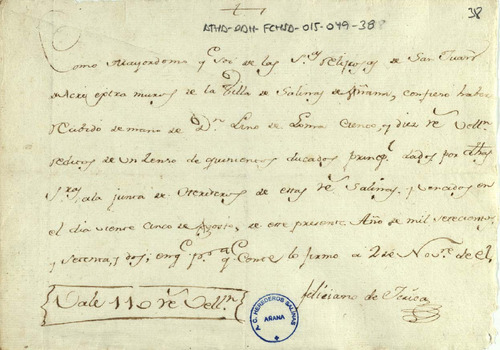 ATHA-DAH-FCHSA-015-049-38
38
Como Mayordomo y de las S.as Relixiosas de San Juan
de Acre extra muros de la Villa de Salinas de Añana, confieso haber
recibido de mano de D.n Lino de Loma Ciento, y diez r.s Vell.n
reditos de un Zenso de quinientos ducados princip.l dados por dhas
S.ras a la junta de Herederos de estas r.s Salinas, y vencidos en
el dia veinte cinco de Agosto, de este presente Año de mil setecientos
y setenta, y dos; y q.e Conste lo firmo a 2 de Nov.re de el,
Vale 110 r.s Vell.n
feliciano de
HEREDEROS SALINAS
AÑANA